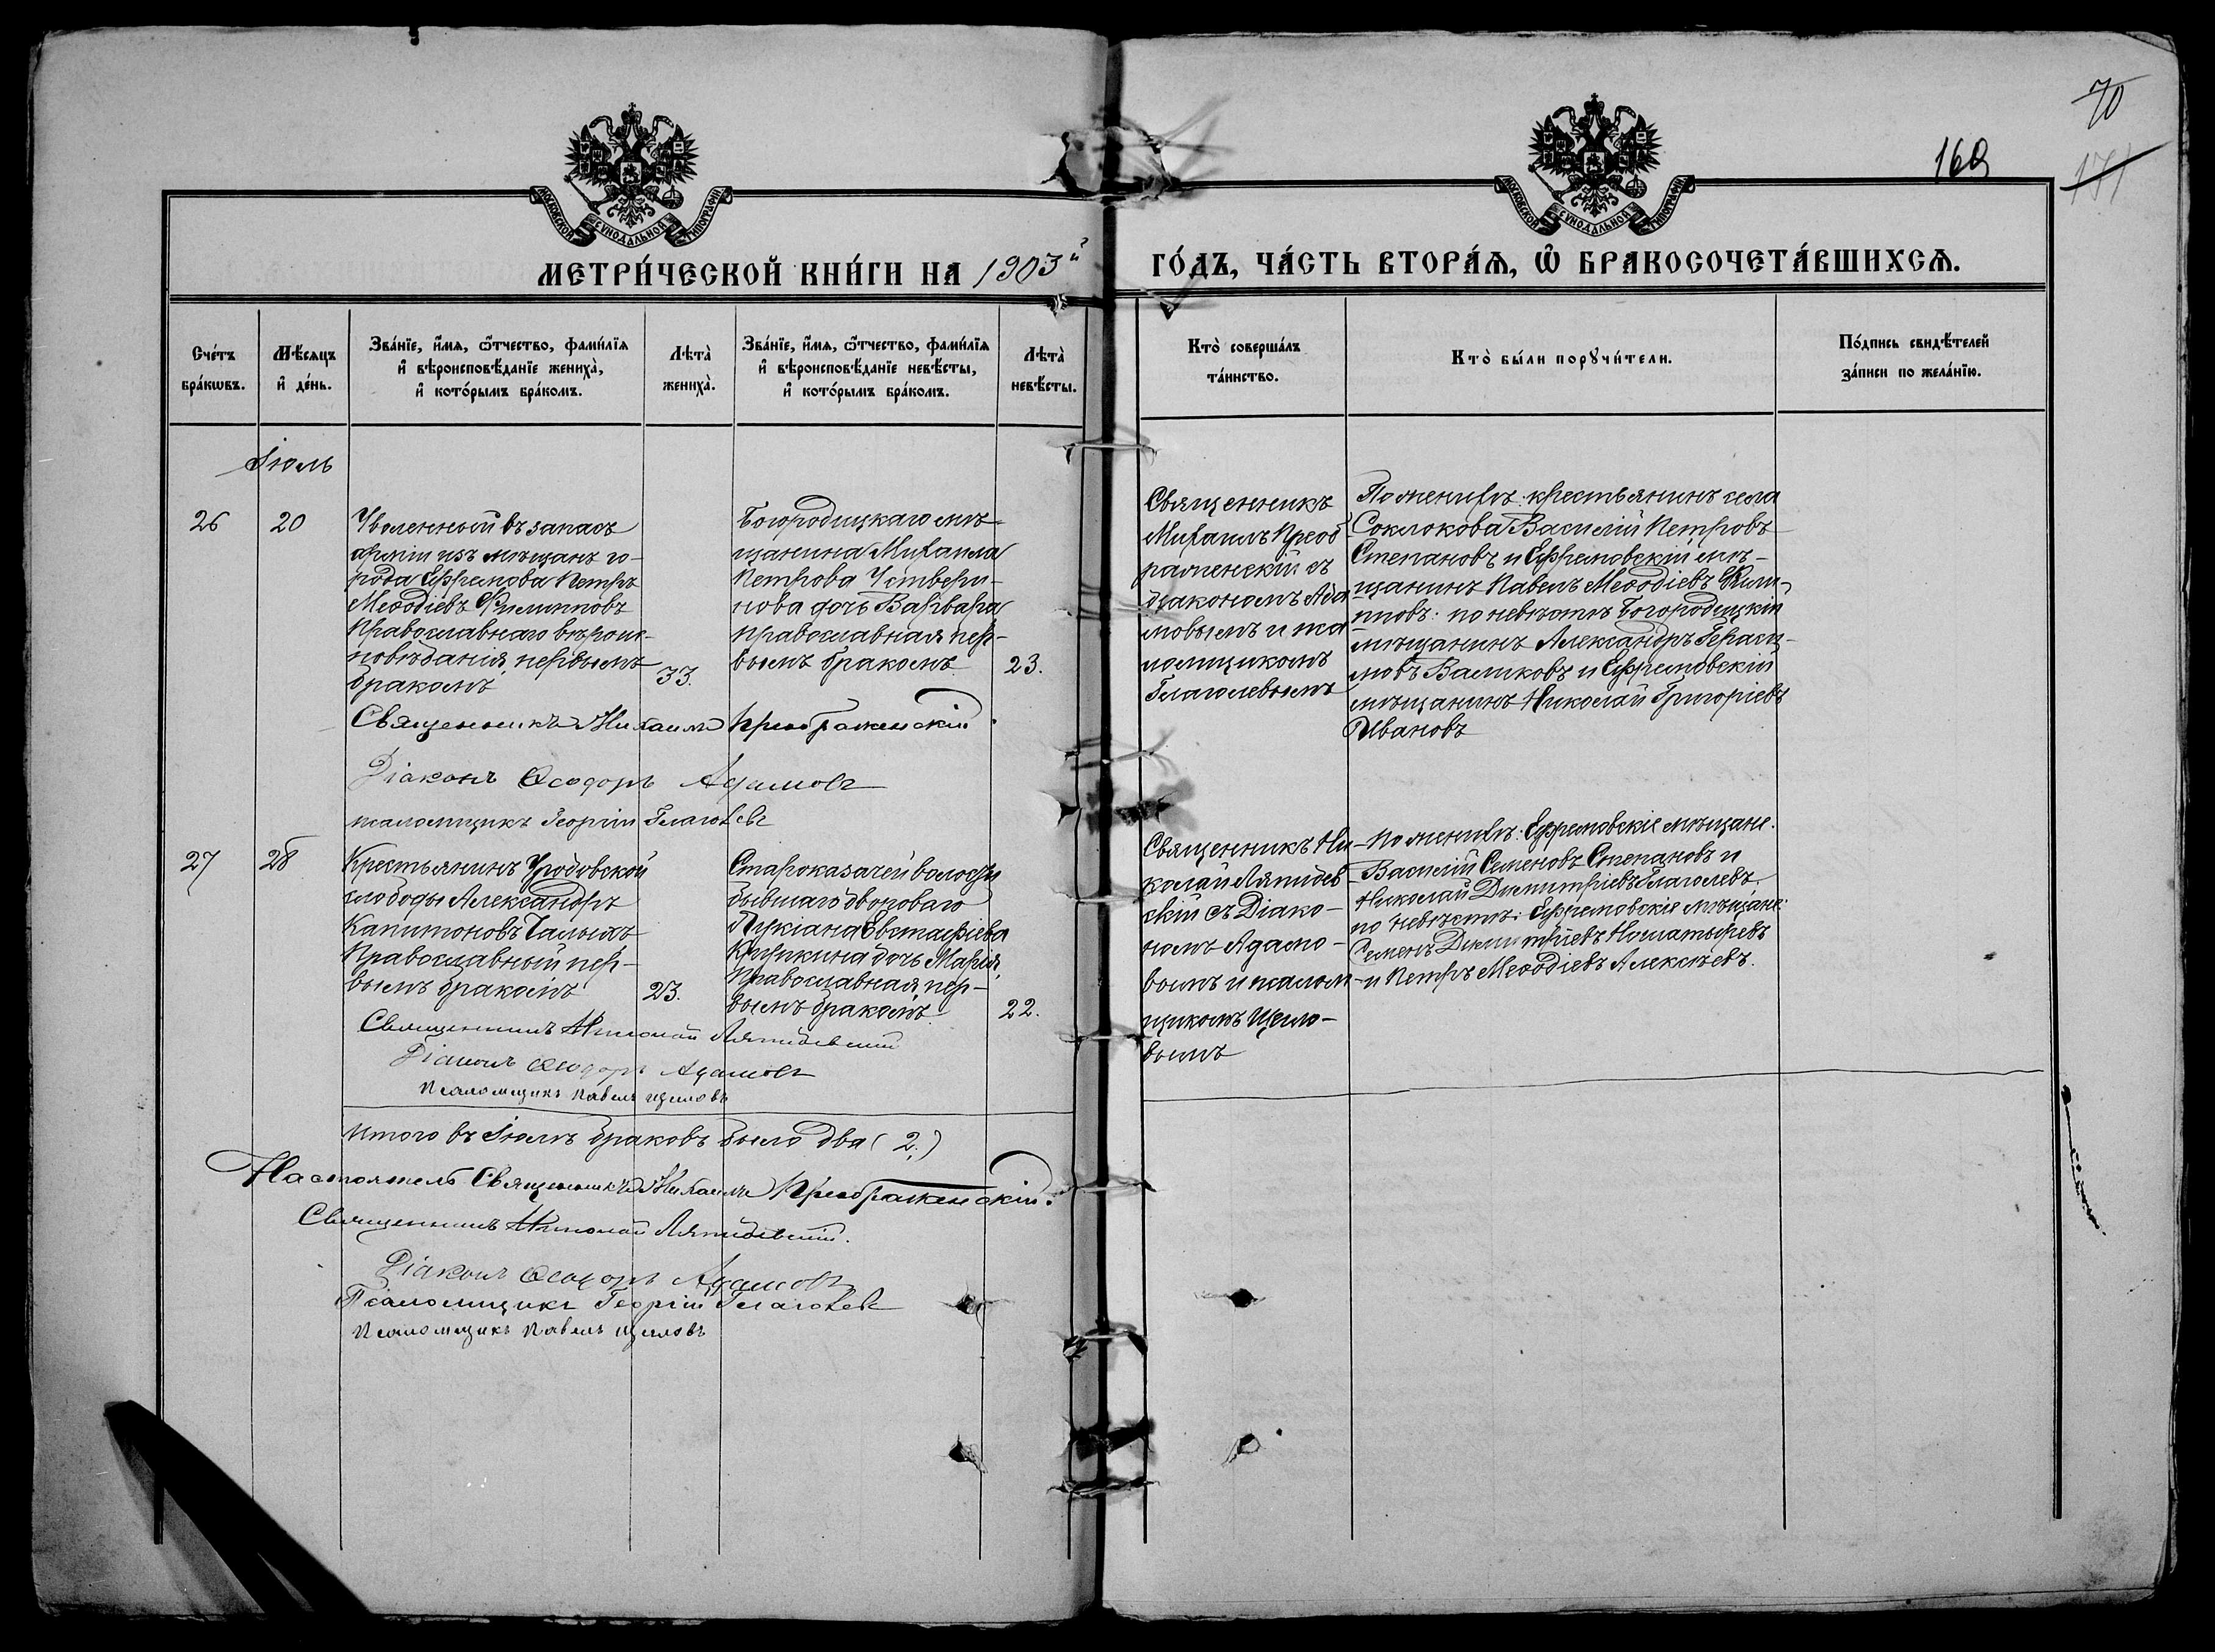 70
169
171
МОСКОВСКОЙ СѴНОДАЛЬНОЙ ТИПОГРАФІИ
МОСКОВСКОЙ СѴНОДАЛЬНОЙ ТИПОГРАФІИ
МЕТРИ́ЧЕСКОЙ КНИ́ГИ НА 1903й
ГО́ДЪ, ЧА́СТЬ ВТОРА́Ѧ, Ѽ БРАКОСОЧЕТА́ВШИХСѦ.
Сче́тъ
бра́кωвъ.
Мѣ́сѧцъ
и҆ де́нь.
Зва́нїе, и҆́мѧ, ѻ҆́тчество, фами́лїѧ
и҆ вѣроисповѣ́данїе жениха̀,
и҆ кото́рымъ бра́комъ.
Лѣта̀
жениха̀.
Зва́нїе, и҆́мѧ, ѻ҆́тчество, фами́лїѧ
и҆ вѣроисповѣ́данїе невѣ́сты,
и҆ кото́рымъ бра́комъ.
Лѣта̀
невѣ́сты.
Кто̀ соверша́лъ
та́инство.
Кто̀ бы́ли порꙋчи́тели.
По́дпись свидѣ́телей
за́писи по жела́нїю.
Іюль
26
20
Уволенный въ запасъ
арміи изъ мѣщанъ го-
рода Ефремова Петръ
Меѳодіевъ Филипповъ
Православнаго вѣроис-
повѣданія, первымъ
бракомъ
33.
Богородицкаго мѣ-
щанина Михаила
Петрова Уствери-
нова дочь Варвара
православная пер-
вымъ бракомъ
23.
Священникъ
Михаилъ Преоб
раженскій съ
діакономъ Ада
мовымъ и пса
ломщикомъ
Глаголевымъ
По женихѣ: крестьянинъ села
Соклокова Василій Петровъ
Степановъ и Ефремовскій мѣ-
щанинъ Павелъ Меѳодіевъ Фили-
пповъ: по невѣстѣ Богородицкій
мѣщанинъ Александръ Гераси-
мовъ Валиковъ и Ефремовскій
мѣщанинъ Николай Григоріевъ
Ивановъ
Священникъ Михаилъ Преображенскій
Діаконъ Ѳеодоръ Адамовъ
псаломщикъ Георгій Глаголевъ
27
28
Крестьянинъ Уродовской
слободы Александръ
Капитоновъ Галыхъ
Православный пер-
вымъ бракомъ
23.
Староказачей волости
бывшаго двороваго
Лукіана Евстафіева
дочь Марія
Православная, пер-
вымъ бракомъ
22.
Священникъ Ни-
колай Ляпидев
скій съ Діако-
номъ Адамо-
вымъ и псалом
щикомъ Щегло-
вымъ
По женихѣ: Ефремовскіе мѣщане.
Василій Семеновъ Степановъ и
Николай Димитріевъ Глаголевъ,
по невѣстѣ: Ефремовскіе мѣщане:
Семенъ Димитріевъ
и Петръ Меѳодіевъ Алексѣевъ.
Священникъ Николай Ляпидевскій
Діаконъ Ѳеодоръ Адамовъ
Псаломщикъ Павелъ Щегловъ
Итого въ Іюлѣ браковъ было два (2.)
Настоятель Священникъ Михаилъ Преображенскій.
Священникъ Николай Ляпидевскій.
Діаконъ Ѳеодоръ Адамовъ
Псаломщикъ Георгій Глаголевъ
Псаломщикъ Павелъ Щегловъ